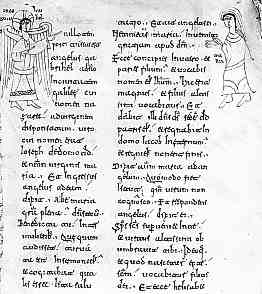 In illo tem
pore missus est
angelus ga
brihel a deo
in civitatem
galilee cui
nomen na
zareth ad virginem
disponsatam viro
cui nomen erat
ioseph de domo dd
et nomen virginis ma
ria. Et ingressus
angelus ad eam
dixit. Abe maria
gratia plena dns tecum
benedicta tu inter
mulieres. Que quum
audisset turbata
est in sermone eius
et cogitabat qua
lis esset ista salu
tatio. Et ait angelus ei.
Ne timeas maria. invenisti
gratiam apud dm.
Ecce concipies in utero et
paries filium. et vocabis
nomen eius Ihm. Hic erit
magnus. et filius altissi
mi vocabitur. Et da
bit illi dns ds sedem dd
patris eius. et regnabit in
domo iacob in eternum
et regni eius non erit finis.
Dixit autem maria ad an
gelum. Quomodo fiet
istud. quia virum non
cognosco. Et respondens
angelus. dixit ei.
Sps sanctus superveniet in te
et virtus altissimi ob
umbravit tibi. Ideoq
et quod nascetur sanc
tum. vocabitur filius
dei. Et ecce helisabe